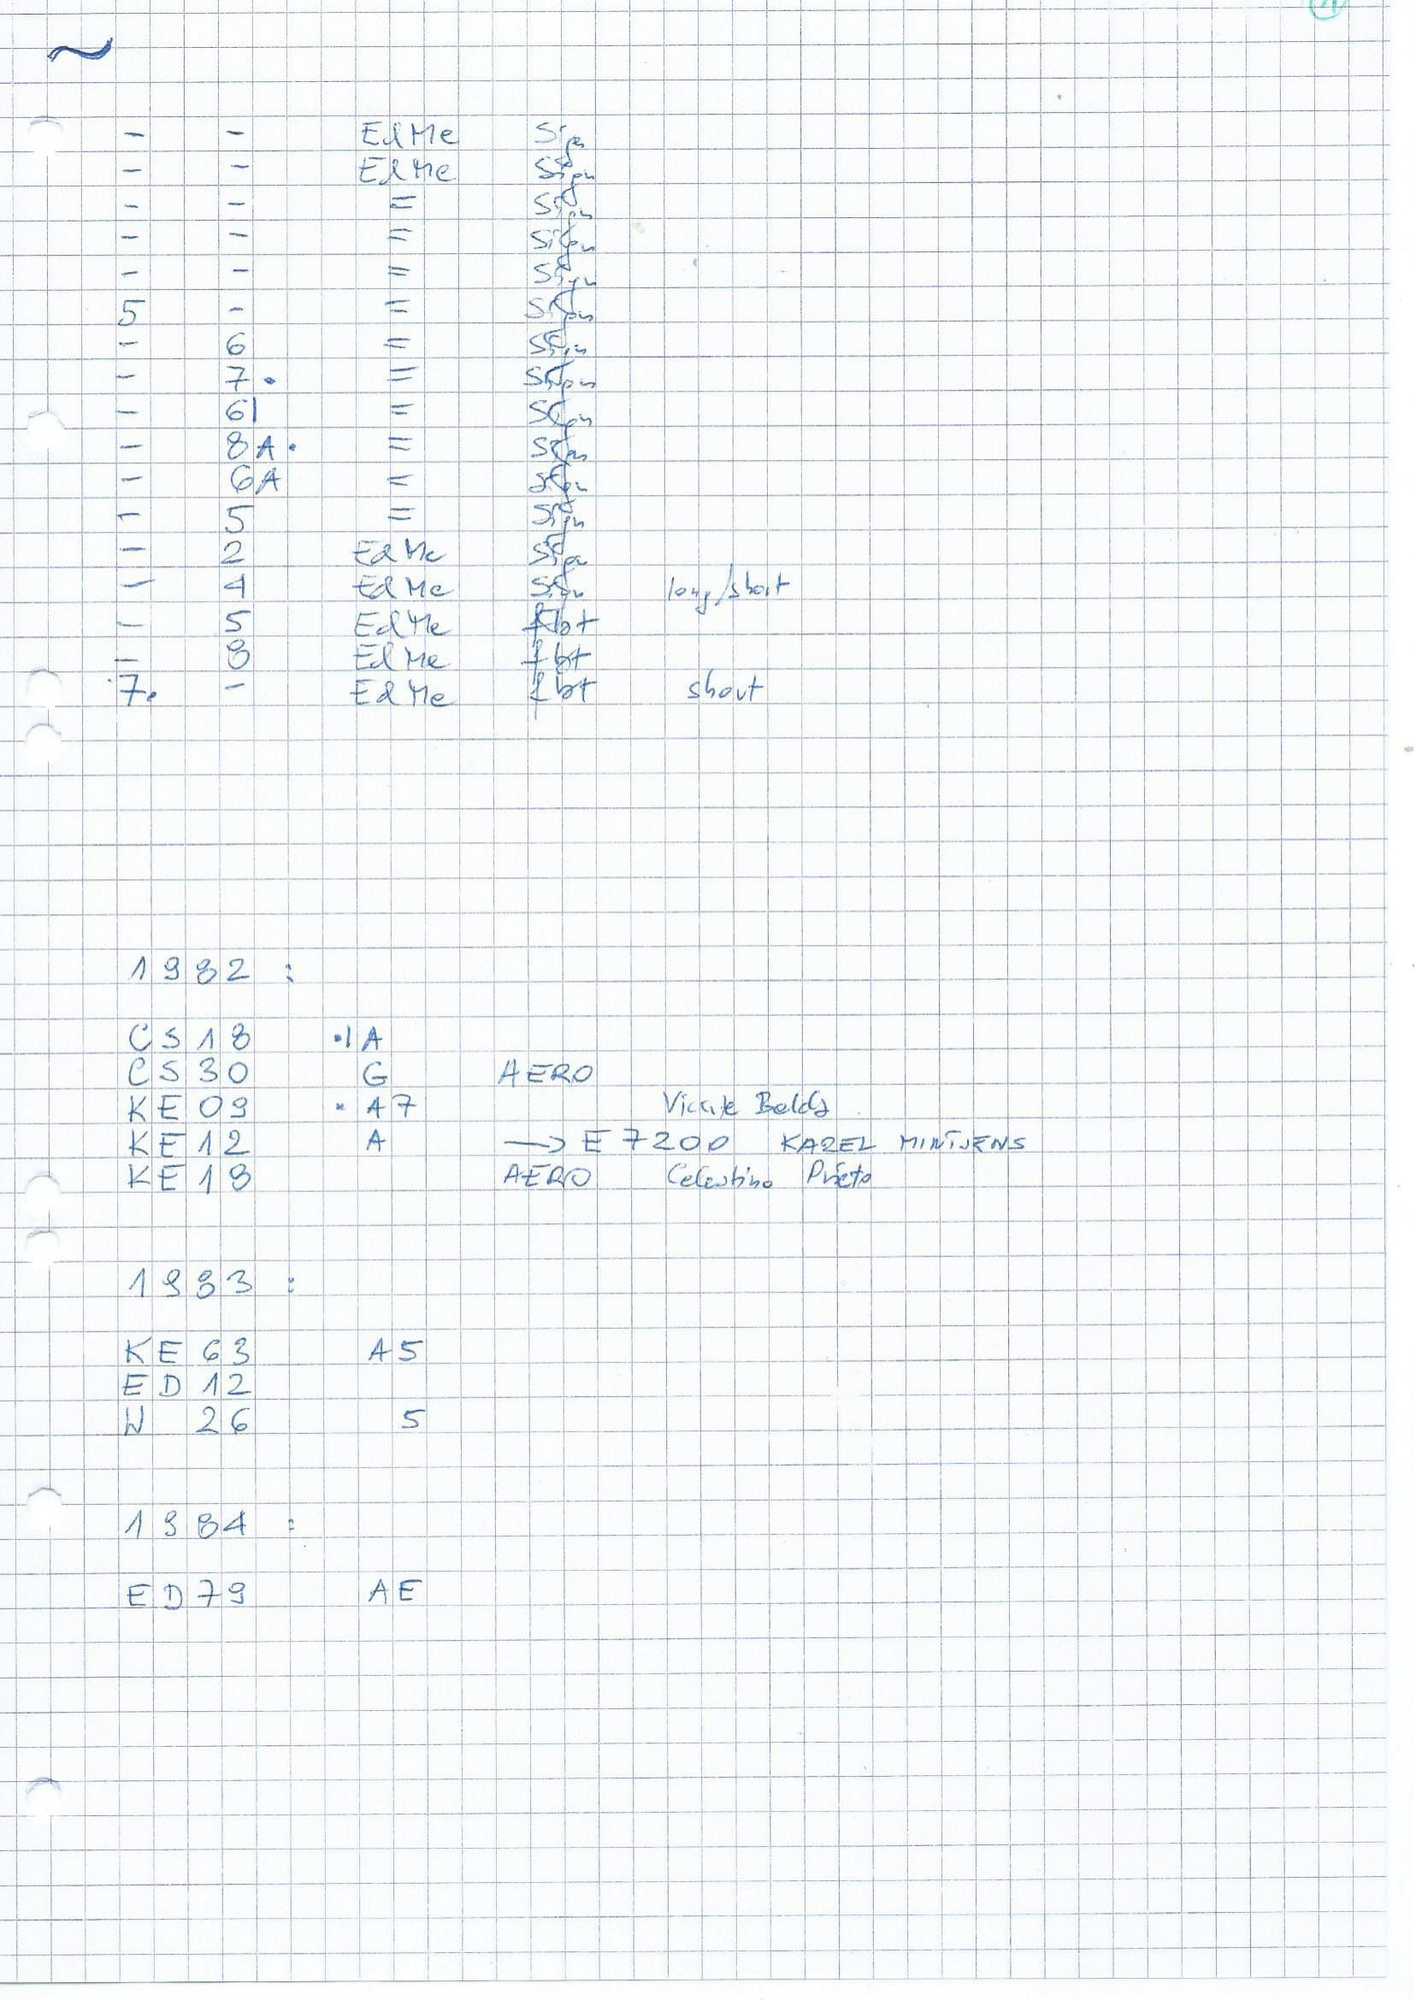 ~
- - EdMe Sign
- - EdMe Sign
- - = Sign
- - = Sign
- - = Sign
5 - = Sign
- 6 = Sign
- 7. = Sign
- 6| = Sign
- 8A. = Sign
- 6A = Sign
- 5 = Sign
- 2 EdMe Sign
- 4 EdMe Sign long/short
- 5 EdMe fbt
- 8 EdMe fbt
7. - EdMe fbt short
1982 :
CS18 ·| A
CS30 G AERO
KE09 · A7 Vicente Belda
KE12 A → E 7200 KAREL MINTJENS
KE18 AERO Celestino Prieto
1983 :
KE63 A5
ED12
W 26 5
1984 :
ED79 AE